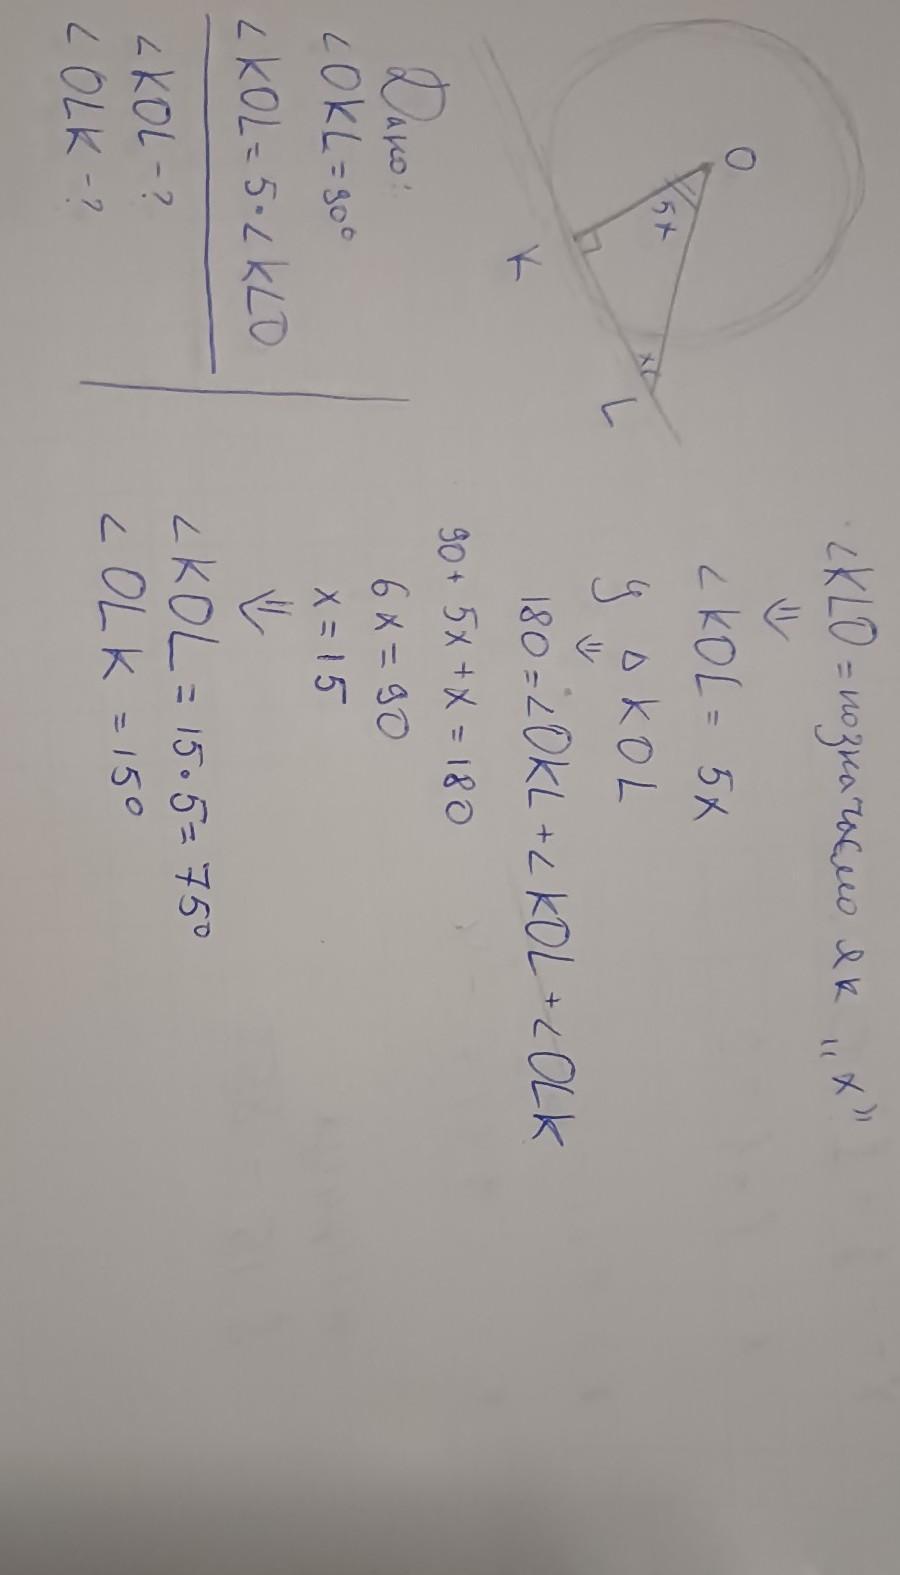 O
5x
x
K
L
Дано:
∠OKL = 90°
∠KOL = 5·∠KLO
∠KOL - ?
∠OLK - ?
∠KLO = позначаємо як „x”
⇓
∠KOL = 5x
У △KOL
⇓
180 = ∠OKL + ∠KOL + ∠OLK
90 + 5x + x = 180
6x = 90
x = 15
⇓
∠KOL = 15·5 = 75°
∠OLK = 15°